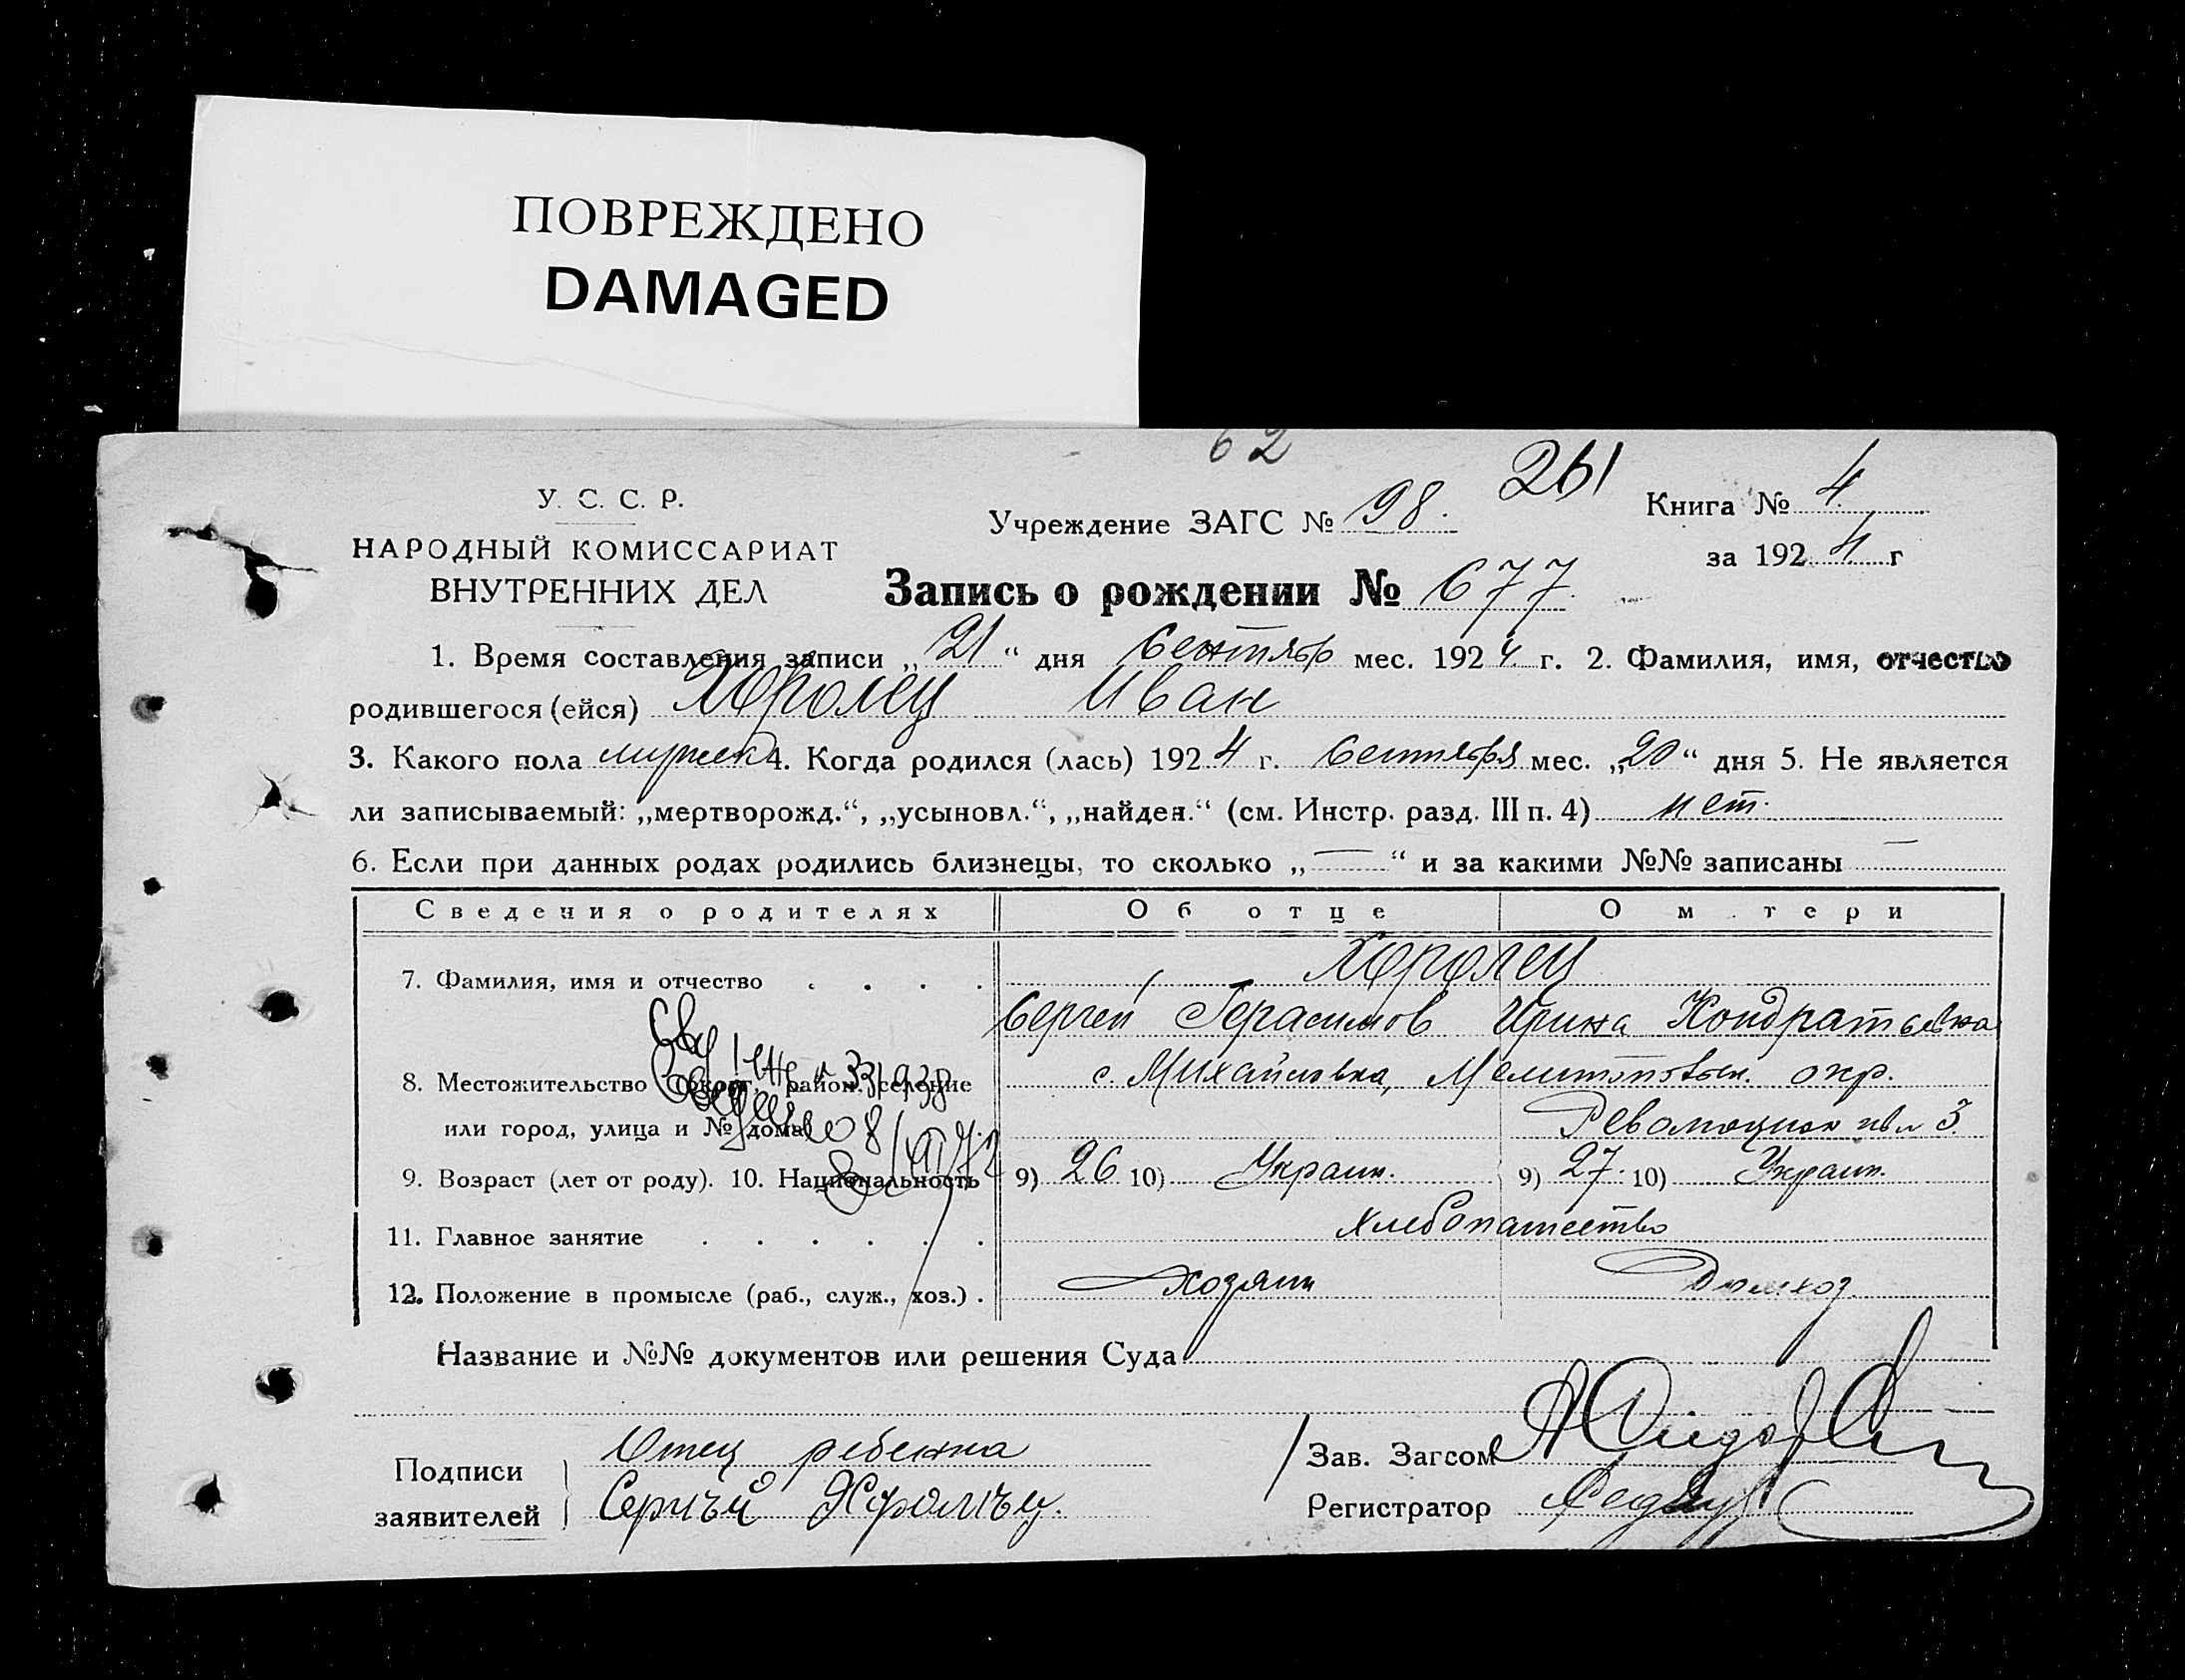 ПОВРЕЖДЕНО
DAMAGED
62
261
У. С. С. Р.
НАРОДНЫЙ КОМИССАРИАТ
ВНУТРЕННИХ ДЕЛ
Учреждение ЗАГС № 98.
Книга № 4.
за 1924 г
Запись о рождении № 677.
1. Время составления записи „21“ дня Сентябр мес. 1924 г. 2. Фамилия, имя, отчество
родившегося (ейся) Хоролец Иван
3. Какого пола мужск 4. Когда родился (лась) 1924 г. Сентября мес. „20“ дня 5. Не является
ли записываемый: „мертворожд.“, „усыновл.“, „найден.“ (см. Инстр. разд. III п. 4) нет.
6. Если при данных родах родились близнецы, то сколько „—“ и за какими №№ записаны —
Сведения о родителях Об отце О м тери
7. Фамилия, имя и отчество . . . . Хоролец
Сергей Герасимов Ирина Кондратьевна
8. Местожительство округ, район, селение с. Михайловка, Мелитопольск. окр.
или город, улица и № дома Революцион 3.
9. Возраст (лет от роду). 10. Национальность 9) 26 10) Украин. 9) 27. 10) Украин.
11. Главное занятие . . . . . . Хлебопашество
12. Положение в промысле (раб., служ., хоз.) . Хозяин Домхоз.
Название и №№ документов или решения Суда
Подписи
заявителей
Отец ребенка
Сергъй Хоролъц.
Зав. Загсом
Регистратор